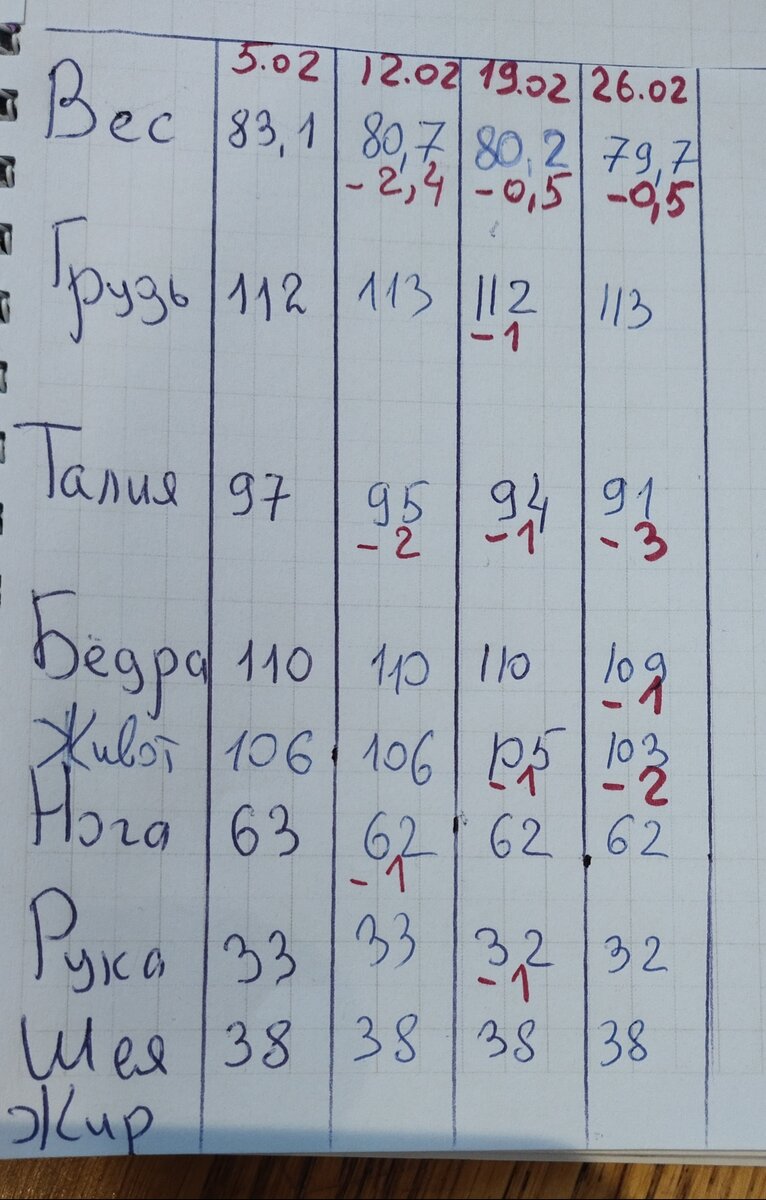 5.02 12.02 19.02 26.02
Вес 83,1 80,7 80,2 79,7
-2,4 -0,5 -0,5
Грузь 112 113 112 113
-1
Талия 97 95 94 91
-2 -1 -3
Бёдра 110 110 110 109
-1
Живот 106 106 105 103
-1 -2
Нога 63 62 62 62
-1
Рука 33 33 32 32
-1
Шея 38 38 38 38
Жир